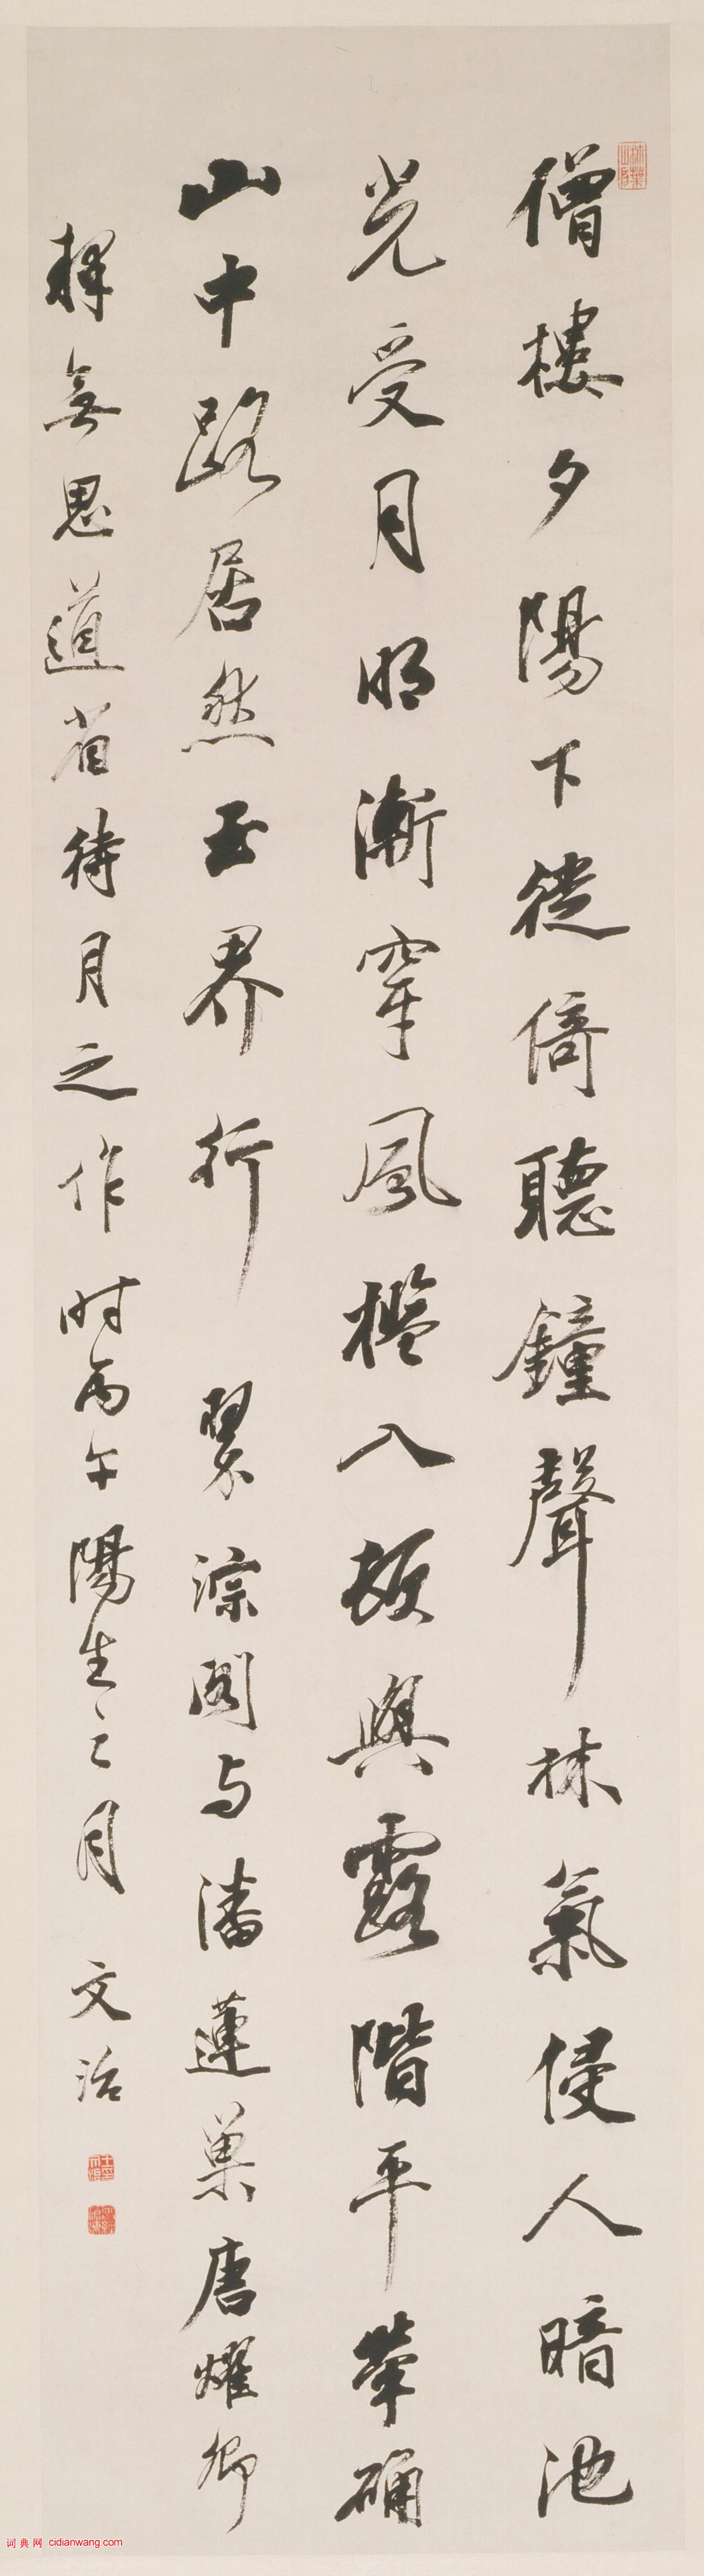 僧樓夕陽下徙倚聽鐘聲林氣侵人暗池
光受月明漸穿風檻入頓與露階平犖确
山中路居然玉界行 聚淙閣与潘蓮巢唐耀卿
釋無思道省待月之作时丙午陽生之月 文治
词典网 cidianwang.com